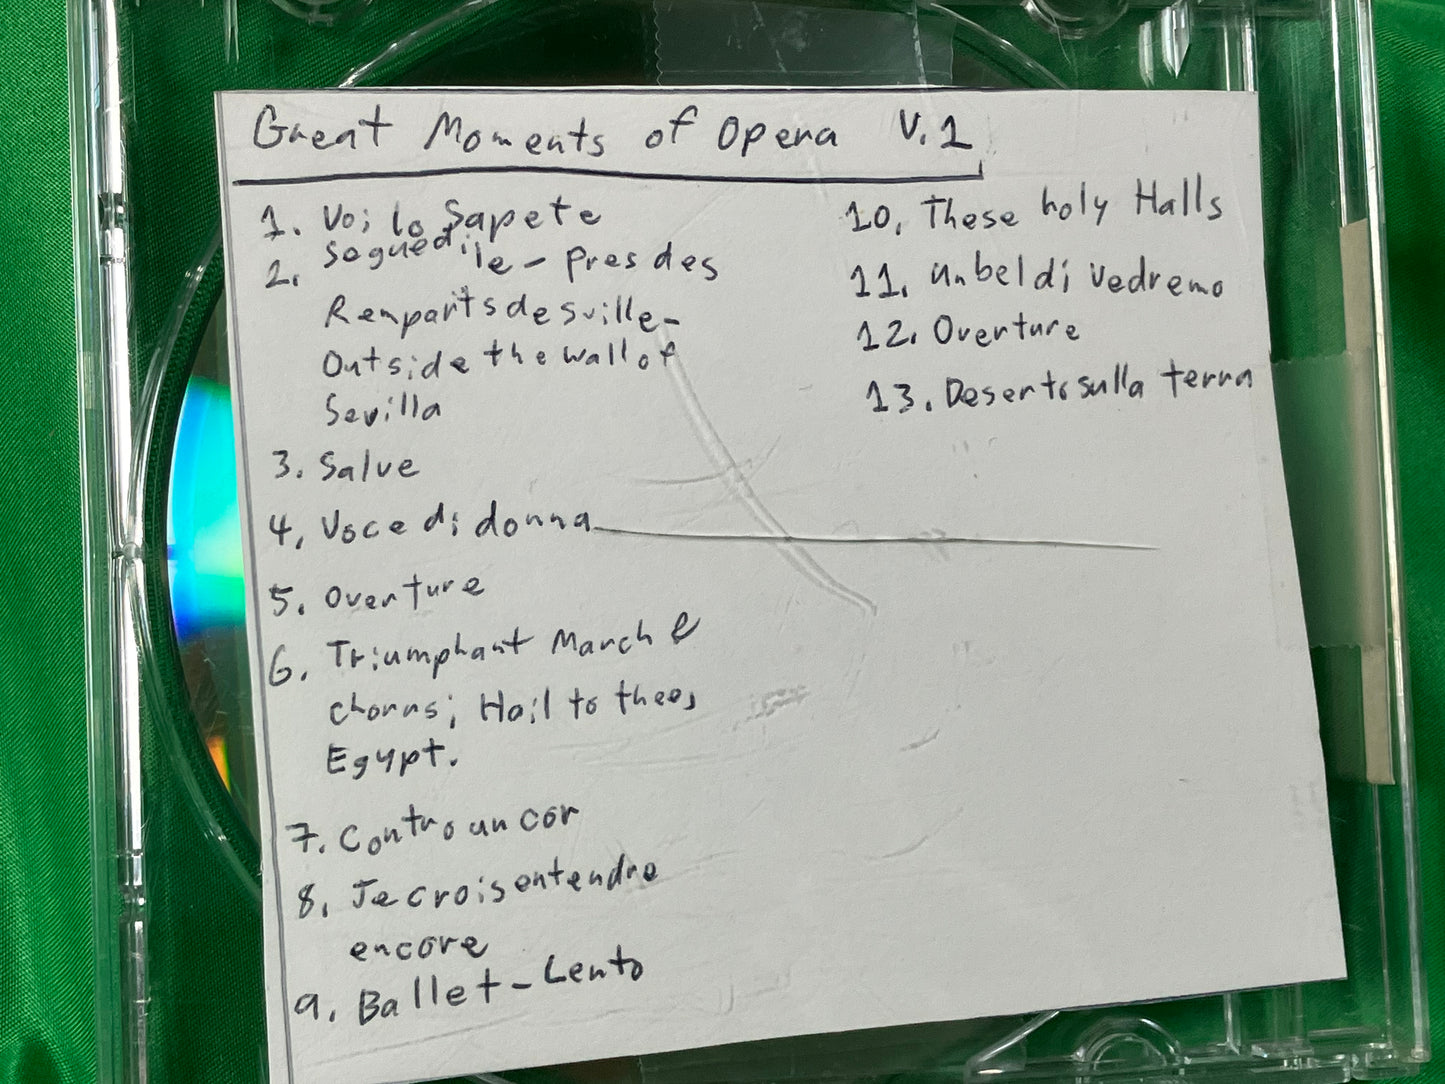 Great Moments of Opera V.1
1. Voi lo Sapete
2. Seguedille - Pres des
Remparts de sville -
Outside the wall of
Sevilla
3. Salve
4. Voce di donna
5. Overture
6. Triumphant March &
chorus; Hail to thee,
Egypt.
7. Contro un cor
8. Je crois entendre
encore
9. Ballet - Lento
10. These holy Halls
11. un bel di vedremo
12. Overture
13. Deserto sulla terra